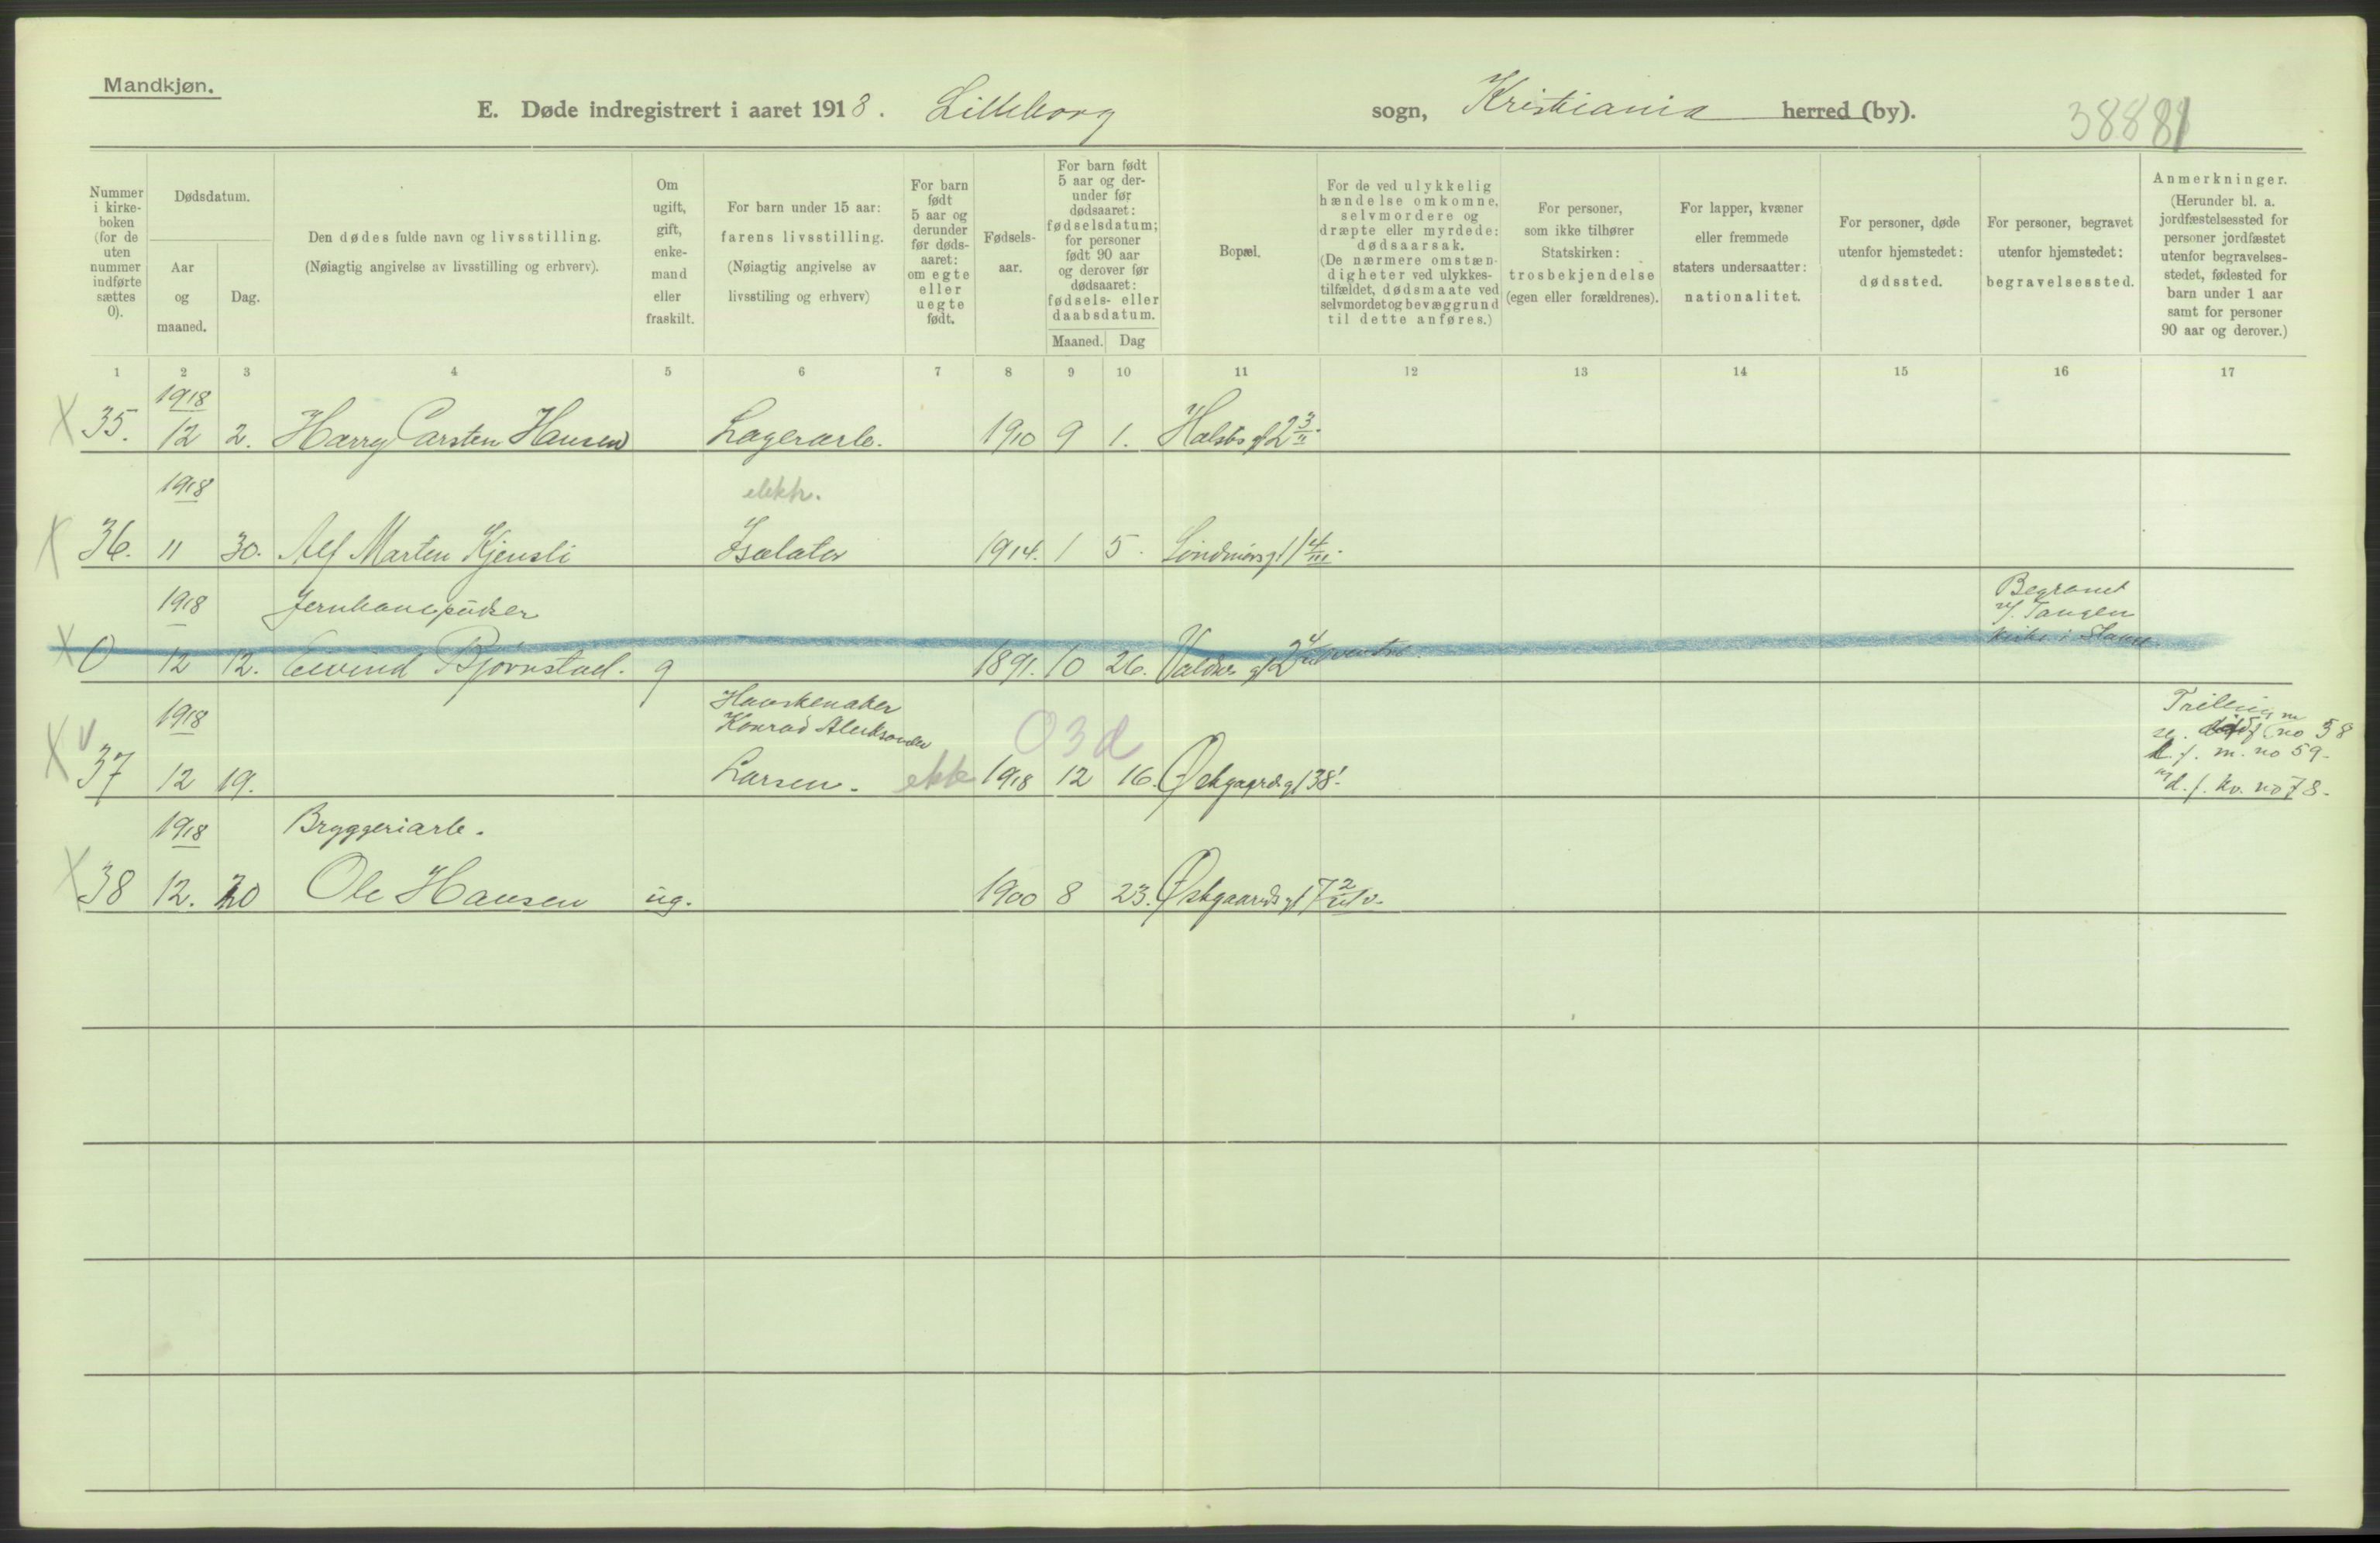 Mandkjøn.
E. Døde indregistrert i aaret 1918. Lilleborg sogn, Kristiania herred (by).
38881
Nummer i kirke-boken (for de uten nummer indførte sættes 0).
Dødsdatum.
Aar og maaned.
Dag.
Den dødes fulde navn og livsstilling.
(Nøiagtig angivelse av livsstilling og erhverv).
Om ugift, gift, enke-mand eller fraskilt.
For barn under 15 aar:
farens livsstilling.
(Nøiagtig angivelse av livsstiling og erhverv)
For barn født 5 aar og derunder før døds-aaret: om egte eller uegte født.
Fødsels-aar.
For barn født 5 aar og der-under før dødsaaret: fødselsdatum; for personer født 90 aar og derover før dødsaaret: fødsels- eller daabsdatum.
Maaned. Dag
Bopæl.
For de ved ulykkelig hændelse omkomne, selvmordere og dræpte eller myrdede: dødsaarsak.
(De nærmere omstæn-digheter ved ulykkes-tilfældet, dødsmaate ved selvmordet og bevæggrund til dette anføres.)
For personer, som ikke tilhører Statskirken: trosbekjendelse (egen eller forældrenes).
For lapper, kvæner eller fremmede staters undersaatter: nationalitet.
For personer, døde utenfor hjemstedet: dødssted.
For personer, begravet utenfor hjemstedet: begravelsessted.
Anmerkninger.
(Herunder bl. a. jordfæstelsessted for personer jordfæstet utenfor begravelses-stedet, fødested for barn under 1 aar samt for personer 90 aar og derover.)
1 2 3 4 5 6 7 8 9 10 11 12 13 14 15 16 17
1918
X 35. 12 2. Harry Carsten Hansen Lagerarb. 1910 9 1. 2 3/II.
1918 elektr.
X 36. 11 30. Alf Marten Kjensli Isolatør 1914. 1 5. 11 4/III.
1918 Jernbanepudser Begravet v/ Tangen
X 0 12 12. Eivind Bjørnstad. g 1891. 10 26. Valdres gt 2 4 kirke i Stange
1918 Konrad Aleksander 03d Trilling m
X v 37 12 19. Larsen. ekte 1918 12 16. Østgaards gt 38. no 58
f. m. no 59.
d. f. kv. no 78.
1918 Bryggeriarb.
X 38 12. 20 Ole Hansen ug. 1900 8 23. Østgaards gt 7 2